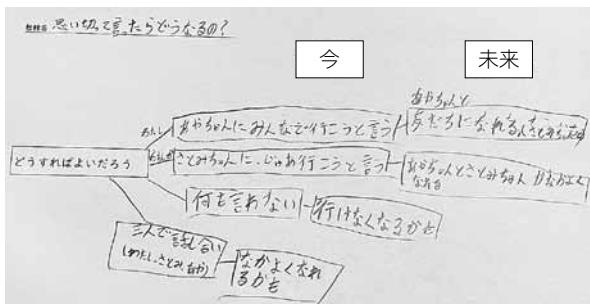 教材名 思い切って言ったらどうなるの?
今
未来
どうすればよいだろう
あやちゃんにみんなで行こうと言う
あやちゃんと
友だちになれる
さとみちゃんに、じゃあ行こうと言う
あやちゃんとさとみちゃん がなかよく
なれる
何も言わない
行けなくなるかも
三人で話し合い
(わたし、さとみ、あや)
なかよくなれ
るかも